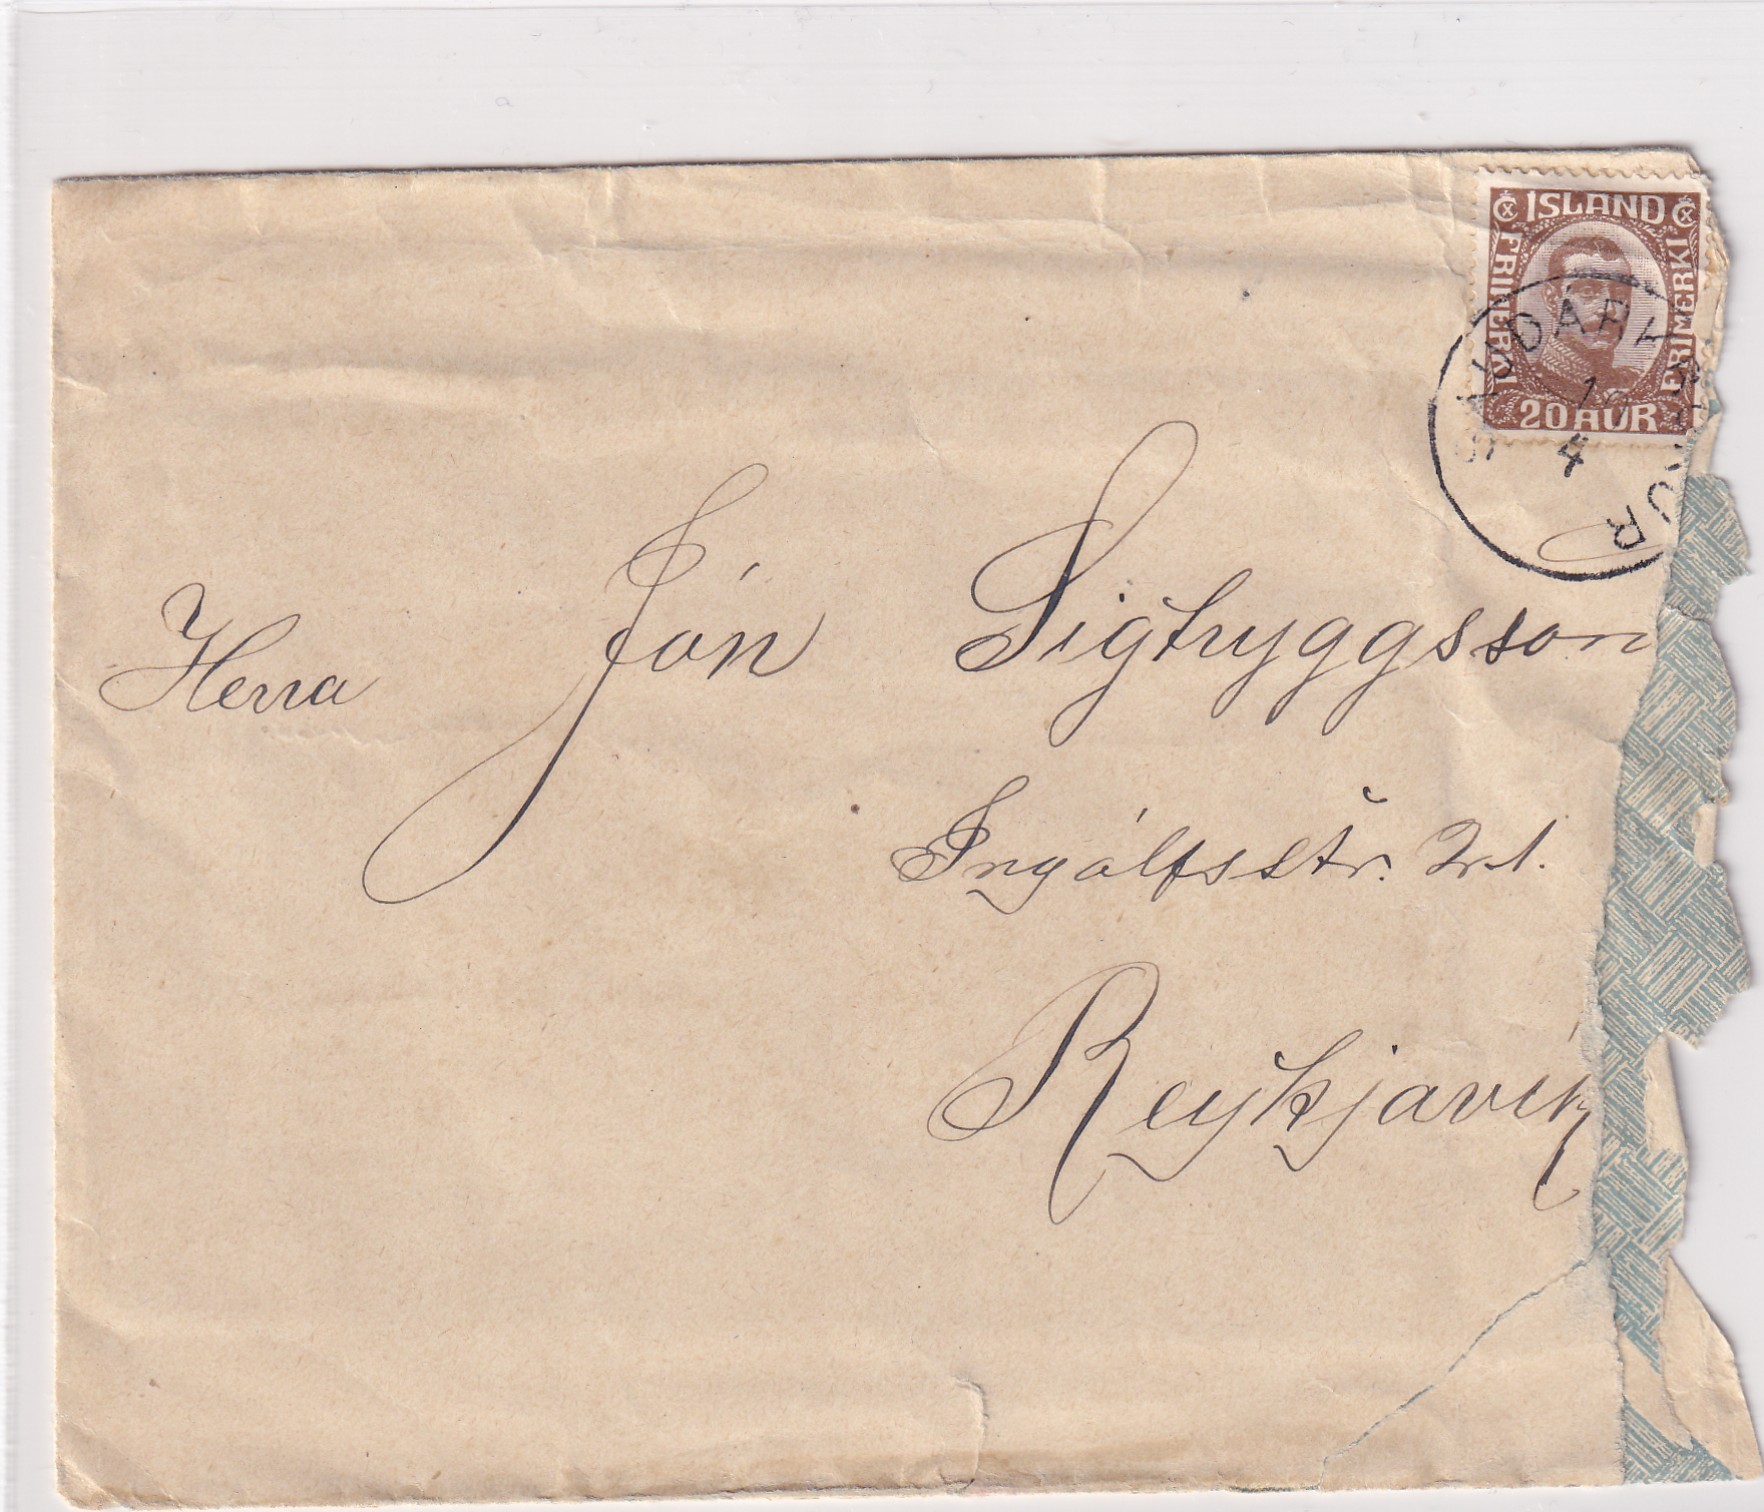 ÍSLAND
FRIMERKI
FRIMERKI
20 AUR
SAUÐÁRKRÓKUR
4
Herra Jón Sigtryggsson
Ingólfsstr.
Reykjavík